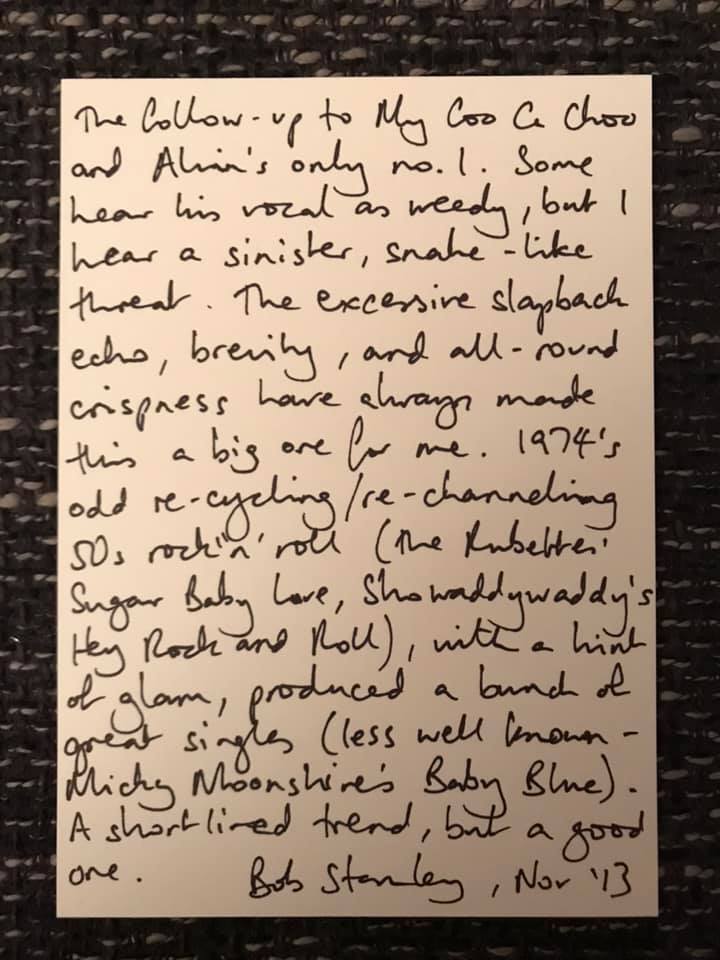 The follow-up to My Coo Ca Choo
and Alvin's only no. 1. Some
hear his vocal as weedy, but I
hear a sinister, snake-like
threat. The excessive slapback
echo, brevity, and all-round
crispness have always made
this a big one for me. 1974's
odd re-cycling/re-channeling
50s rock'n'roll (The Rubettes'
Sugar Baby Love, Showaddywaddy's
Hey Rock and Roll), with a hint
of glam, produced a bunch of
great singles (less well known -
Micky Moonshine's Baby Blue).
A shortlived trend, but a good
one. Bob Stanley, Nov '13